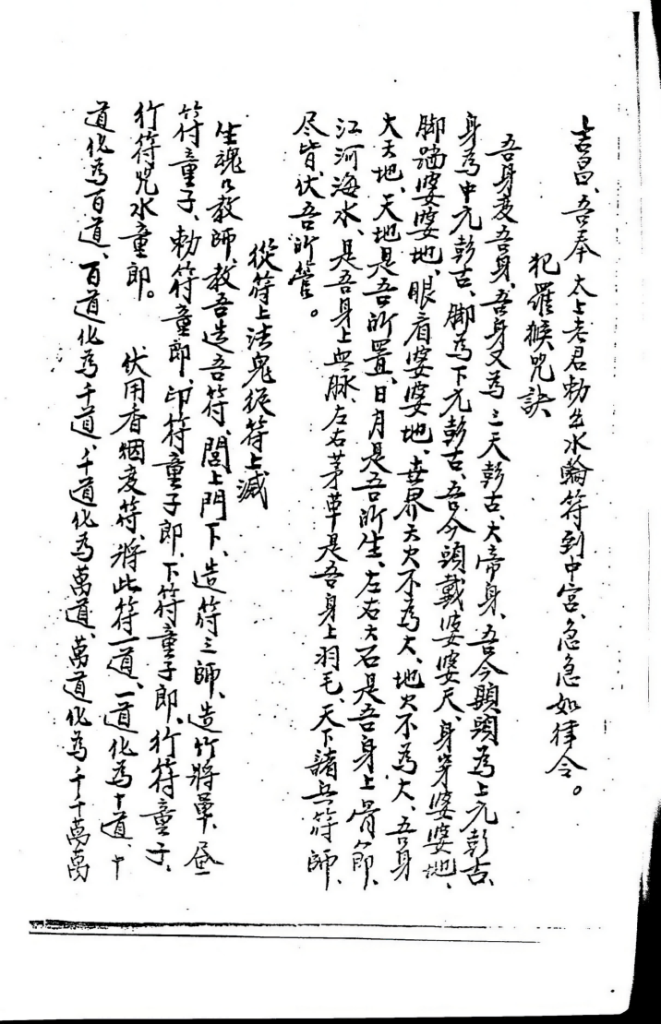 吉昌、吾奉 太上老君勅令水輪符到中宮、急急如律令。
犯羅猴咒訣
吾身变吾身、吾身又為三天彭古、大帝身、吾今頭頭為上元彭古、
身為中元彭古、脚為下元彭古、吾今頭戴婆婆天、身穿婆婆地、
脚踏婆婆地、眼看婆婆地、世界天大不為大、地大不為大、吾身
大天地、天地是吾所置、日月是吾所生、左右大石是吾身上骨節、
江河海水、是吾身上血脉、左右茅草是吾身上羽毛、天下諸兵符師、
尽皆伏吾所管。
從符上法鬼從符上滅
生魂乃教師、教吾造吾符、閭上門下、造符三師、造竹將軍、
符童子、勅符童郎、印符童子郎、下符童子郎、行符童子、
行符咒水童郎。 伏用香烟变符、將此符一道、一道化為十道、十
道化為百道、百道化為千道、千道化為萬道、萬道化為千千萬萬